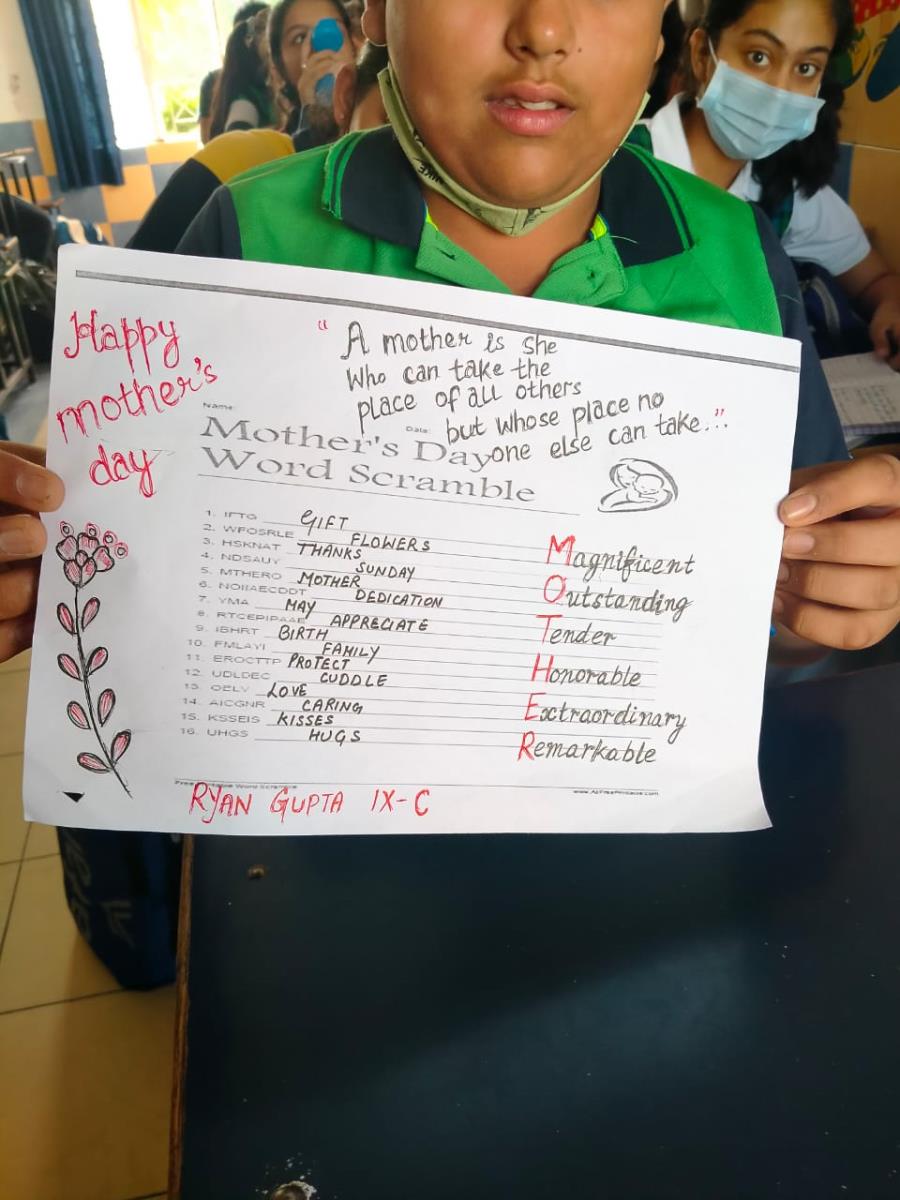 Happy
mother's
day
" A mother is she
who can take the
place of all others
but whose place no
one else can take... "
Name:
Date:
Mother's Day
Word Scramble
1. IFTG GIFT
2. WFOSRLE FLOWERS
3. HSKNAT THANKS
4. NDSAUY SUNDAY
5. MTHERO MOTHER
6. NOIIAECDDT DEDICATION
7. YMA MAY
8. RTCEPIPAAE APPRECIATE
9. IBHRT BIRTH
10. FMLAYI FAMILY
11. EROCTTP PROTECT
12. UDLDEC CUDDLE
13. OELV LOVE
14. AICGNR CARING
15. KSSEIS KISSES
16. UHGS HUGS
Magnificent
Outstanding
Tender
Honorable
Extraordinary
Remarkable
Word Scramble
RYAN GUPTA IX-C
NIKE